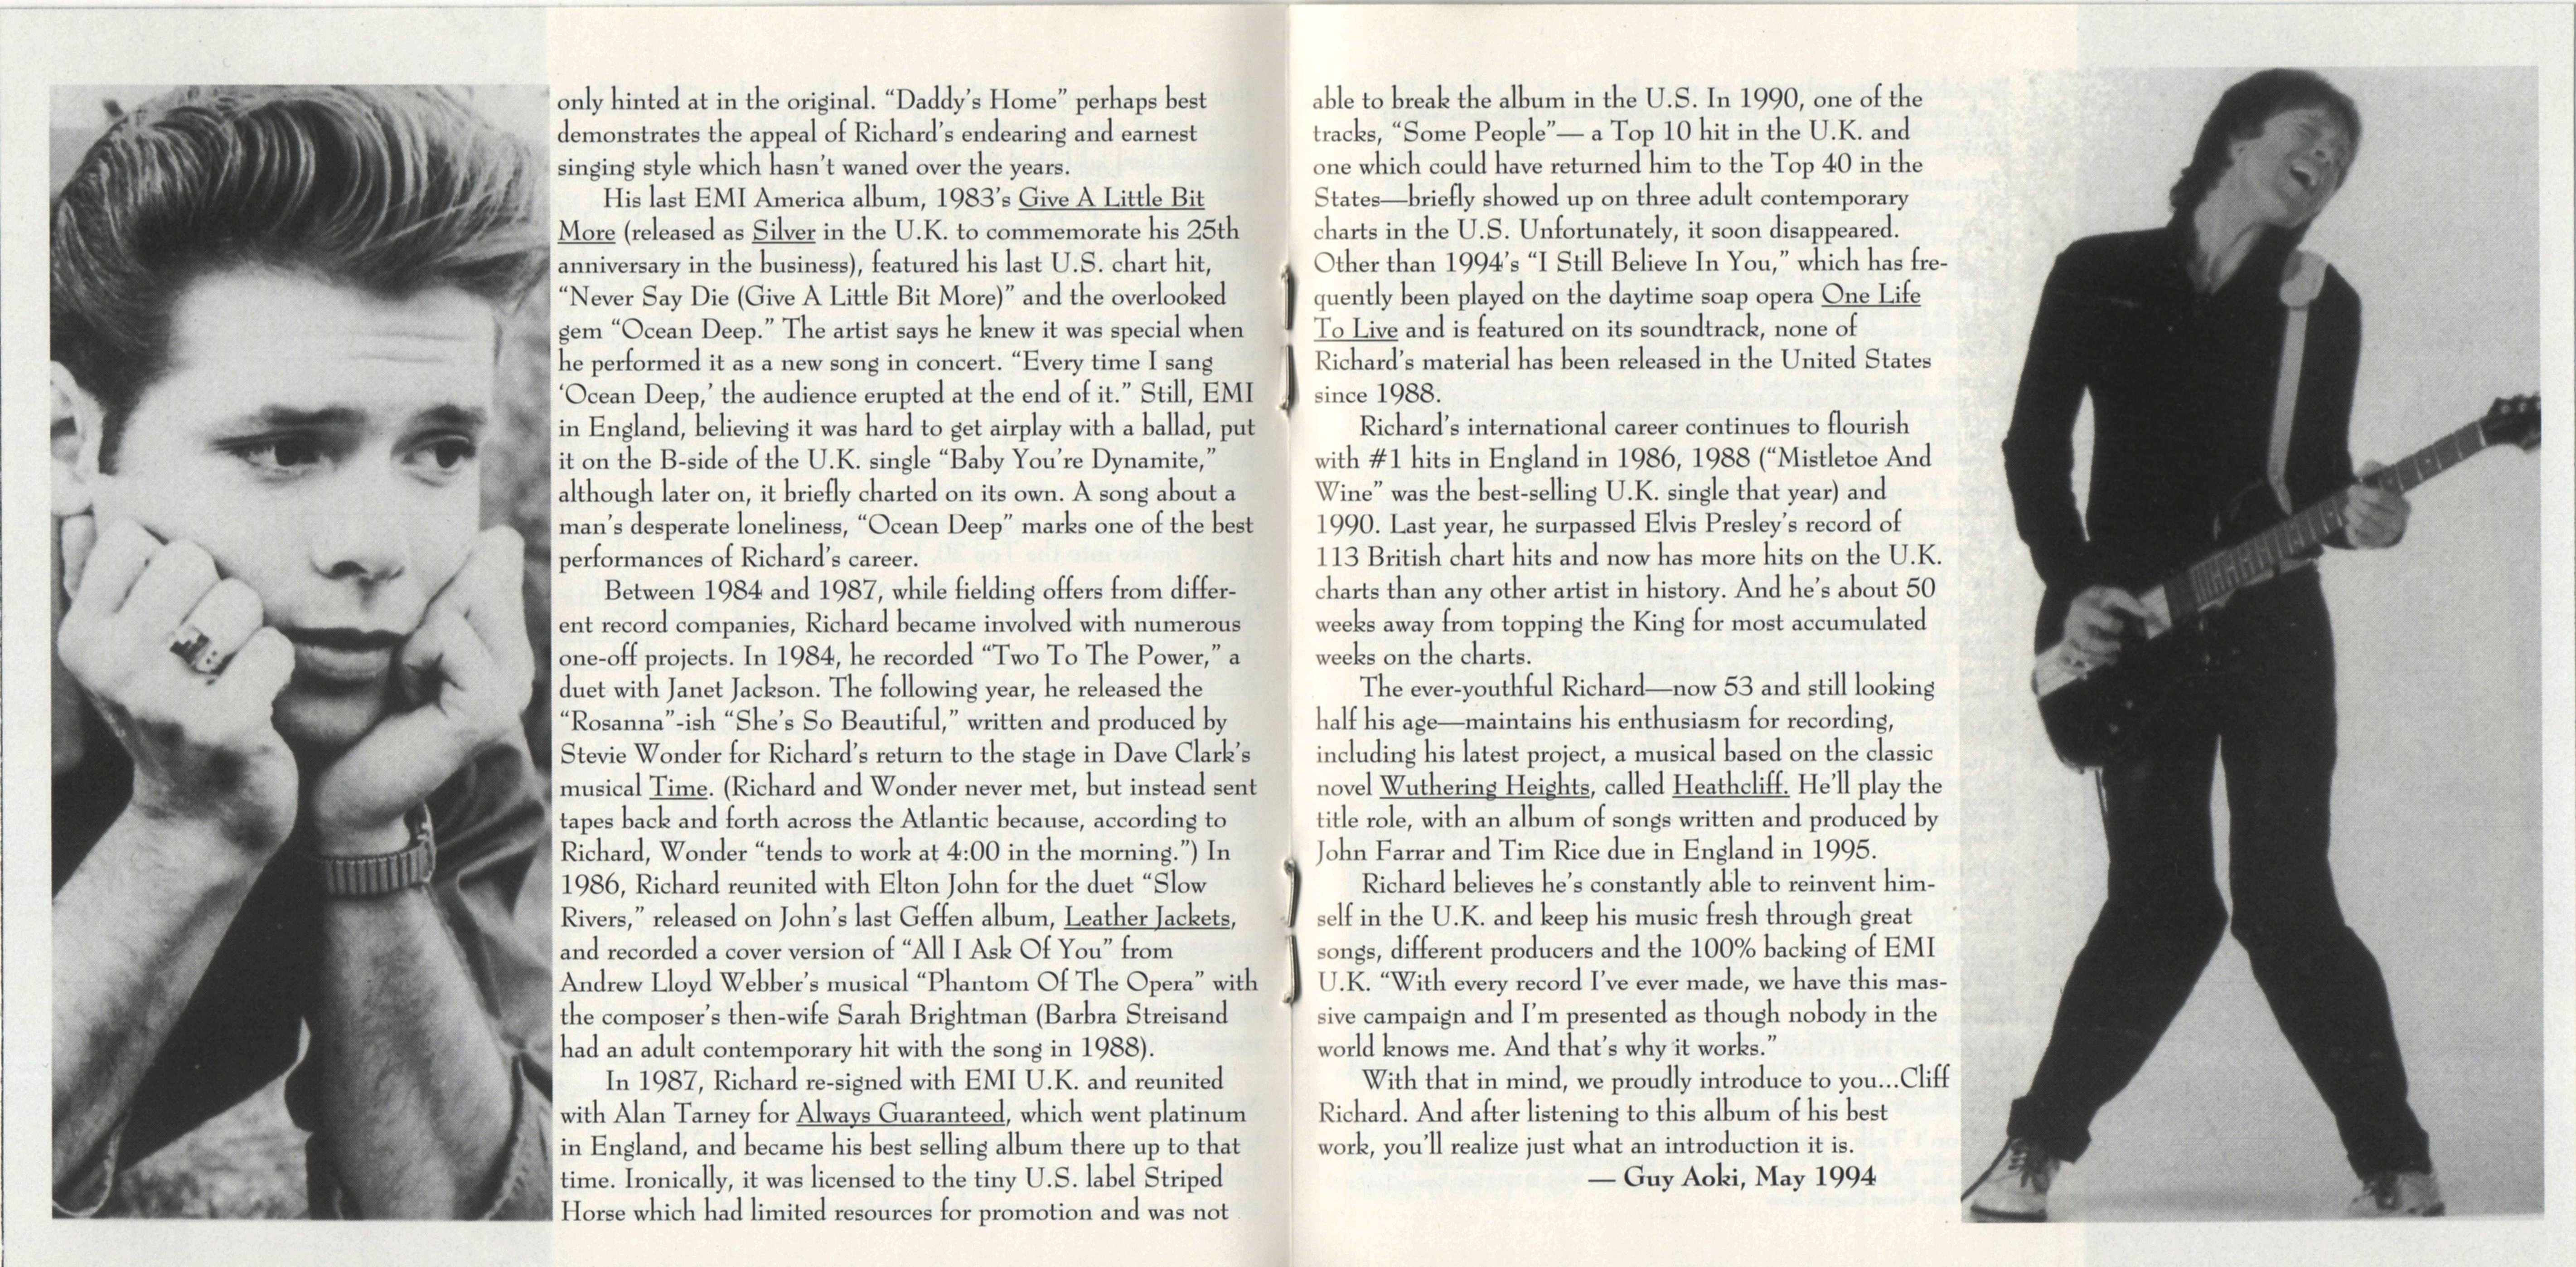 only hinted at in the original. “Daddy’s Home” perhaps best
demonstrates the appeal of Richard’s endearing and earnest
singing style which hasn’t waned over the years.
His last EMI America album, 1983’s Give A Little Bit
More (released as Silver in the U.K. to commemorate his 25th
anniversary in the business), featured his last U.S. chart hit,
“Never Say Die (Give A Little Bit More)” and the overlooked
gem “Ocean Deep.” The artist says he knew it was special when
he performed it as a new song in concert. “Every time I sang
‘Ocean Deep,’ the audience erupted at the end of it.” Still, EMI
in England, believing it was hard to get airplay with a ballad, put
it on the B-side of the U.K. single “Baby You’re Dynamite,”
although later on, it briefly charted on its own. A song about a
man’s desperate loneliness, “Ocean Deep” marks one of the best
performances of Richard’s career.
Between 1984 and 1987, while fielding offers from differ-
ent record companies, Richard became involved with numerous
one-off projects. In 1984, he recorded “Two To The Power,” a
duet with Janet Jackson. The following year, he released the
“Rosanna”-ish “She’s So Beautiful,” written and produced by
Stevie Wonder for Richard’s return to the stage in Dave Clark’s
musical Time. (Richard and Wonder never met, but instead sent
tapes back and forth across the Atlantic because, according to
Richard, Wonder “tends to work at 4:00 in the morning.”) In
1986, Richard reunited with Elton John for the duet “Slow
Rivers,” released on John’s last Geffen album, Leather Jackets,
and recorded a cover version of “All I Ask Of You” from
Andrew Lloyd Webber’s musical “Phantom Of The Opera” with
the composer’s then-wife Sarah Brightman (Barbra Streisand
had an adult contemporary hit with the song in 1988).
In 1987, Richard re-signed with EMI U.K. and reunited
with Alan Tarney for Always Guaranteed, which went platinum
in England, and became his best selling album there up to that
time. Ironically, it was licensed to the tiny U.S. label Striped
Horse which had limited resources for promotion and was not
able to break the album in the U.S. In 1990, one of the
tracks, “Some People”— a Top 10 hit in the U.K. and
one which could have returned him to the Top 40 in the
States—briefly showed up on three adult contemporary
charts in the U.S. Unfortunately, it soon disappeared.
Other than 1994’s “I Still Believe In You,” which has fre-
quently been played on the daytime soap opera One Life
To Live and is featured on its soundtrack, none of
Richard’s material has been released in the United States
since 1988.
Richard’s international career continues to flourish
with #1 hits in England in 1986, 1988 (“Mistletoe And
Wine” was the best-selling U.K. single that year) and
1990. Last year, he surpassed Elvis Presley’s record of
113 British chart hits and now has more hits on the U.K.
charts than any other artist in history. And he’s about 50
weeks away from topping the King for most accumulated
weeks on the charts.
The ever-youthful Richard—now 53 and still looking
half his age—maintains his enthusiasm for recording,
including his latest project, a musical based on the classic
novel Wuthering Heights, called Heathcliff. He’ll play the
title role, with an album of songs written and produced by
John Farrar and Tim Rice due in England in 1995.
Richard believes he’s constantly able to reinvent him-
self in the U.K. and keep his music fresh through great
songs, different producers and the 100% backing of EMI
U.K. “With every record I’ve ever made, we have this mas-
sive campaign and I’m presented as though nobody in the
world knows me. And that’s why it works.”
With that in mind, we proudly introduce to you...Cliff
Richard. And after listening to this album of his best
work, you’ll realize just what an introduction it is.
— Guy Aoki, May 1994